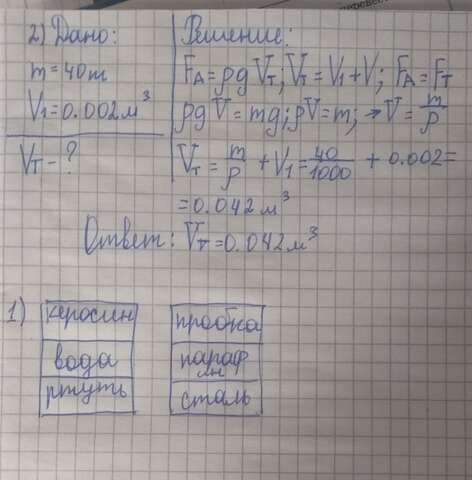 2) Дано:
m = 40т
V₁ = 0.002м³
Vт - ?
Решение:
FA = ρg Vт; Vт = V₁ + V; FA = Fт
ρgV = mg; ρV = m; → V = m/ρ
Vт = m/ρ + V₁ = 40/1000 + 0.002 =
= 0.042 м³
Ответ: Vт = 0.042 м³
1)
керосин
вода
ртуть
пробка
параф
ин
сталь